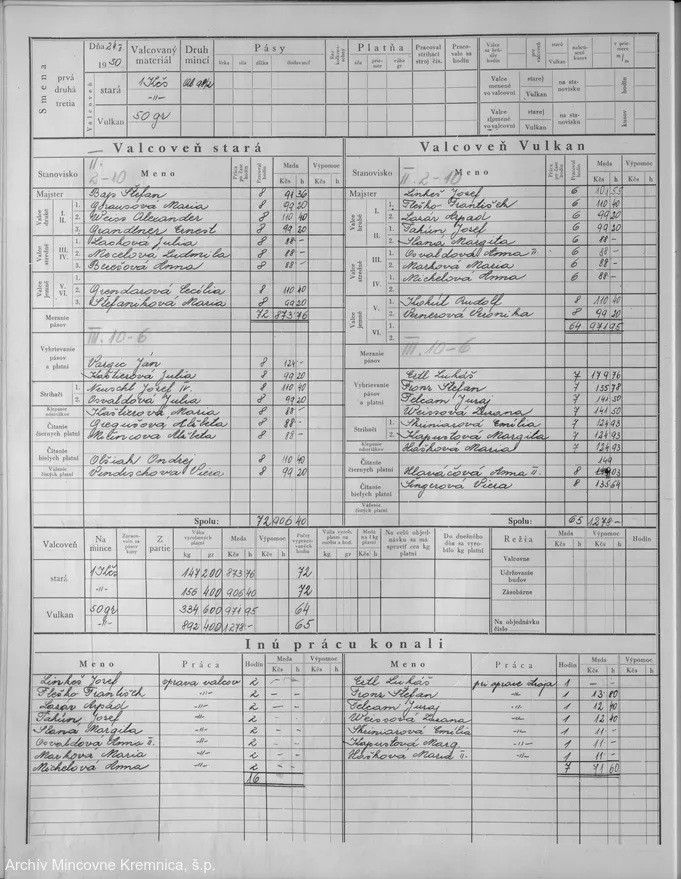 Smena
prvá
druhá
tretia
Dňa
1950
Valcovaný materiál
Druh mincí
Pásy
Platňa
Pracoval strihací stroj čís.
Pracovalo za hodín
Valcovňa
stará
1 Kčs
-"-
Vulkan
50 gr
Valce menené vo valcovni
starej
Vulkan
na stanovisku
hodín
Valce zlomené vo valcovni
starej
Vulkan
na stanovisku
kusov
Valcoveň stará
Stanovisko Meno Mzda Výpomoc
Kčs h Kčs h
II. 2-10
Majster Bajs Štefan 8 91 36
Valce druhé I. II. 1. Grausová Maria 8 99 20
2. Weiss Alexander 8 110 40
3. Grandtner Ernest 8 99 20
Valce stredné III. IV. 1. Zlachová Julia 8 88 -
2. Niecelová Ludmila 8 88 -
3. Berešová Anna 8 88 -
Valce jemné V. VI. 1.
2. Grendarová Cecília 8 110 40
3. Štefaniková Maria 8 99 20
Meranie pásov 72 873 76
III. 10-6
Vyhrievanie pásov a platní
Vargic Ján 8 124 -
Kašierová Julia 8 99 20
Strihači 1. Neuschl Jozef IV. 8 110 40
2. Osvaldová Julia 8 99 20
Klepanie odstrižkov Kašierova Maria 8 88 -
Čítanie čiernych platní Gregušova Alžbeta 8 88 -
Melincova Alžbeta 8 88 -
Čítanie bielych platní Olšiak Ondrej 8 110 40
Váženie čistých platní Pindischova Viera 8 99 20
Spolu: 72 906 40
Valcoveň Vulkan
Stanovisko Meno Mzda Výpomoc
Kčs h Kčs h
II. 2-10
Majster Linkeš Jozef 6 101 55
Valce hrubé I. 1. Fleško František 6 110 40
2. Lazár Arpád 6 99 20
II. 1. Takúň Jozef 6 99 20
2. Slaná Margita 6 88 -
Valce stredné III. 1. Osvaldová Anna II 6 88 -
2. Marková Maria 6 88 -
IV. 1. Michelová Anna 6 88 -
2.
Valce jemné V. 1. Kiškut Rudolf 8 110 40
2. Vernerová Veronika 8 99 20
VI. 1. 64 971 95
2.
Meranie pásov
III. 10-6
Vyhrievanie pásov a platní
Ertl Lukáš 7 179 76
Frons Štefan 7 155 78
Telcam Juraj 7 141 50
Weissová Zuzana 7 141 50
Strihači 1. Skuniarová Emília 7 124 93
2. Kapustová Margita 7 124 93
Klepanie odstrižkov Haškova Maria 7 124 93
149
Čítanie čiernych platní Hlaváčová Anna II. 8 03
Čítanie bielych platní Singerová Viera 8 135 64
Váženie čistých platní
Spolu: 65 1278 -
Valcoveň
Na mince
Zpracovalo sa pásov kusy
Z partie
Váha vyrobených platní
kg gr
Mzda
Kčs h
Výpomoc
Kčs h
Počet vypracovaných hodín
Váha vyrob. platní na osobu a hod.
Mzda na 1 kg platní
Na celú objednávku sa má spraviť ešte kg platní
Do dnešného dňa sa vyrobilo kg platní
Réžia
Kčs h
Hodín
stará 1 Kčs 147 200 873 76 72
-"- 156 400 906 40 72
Vulkan 50 gr 334 600 971 95 64
-"- 892 400 1278 - 65
Valcovne
Udržovanie budov
Zásobárne
Na objednávku číslo
Inú prácu konali
Meno Práca Hodín Mzda Výpomoc
Kčs h Kčs h
Linkeš Jozef oprava valcov 2 - -
Fleško František -"- 2 - -
Lazár Arpád -"- 2 - -
Takúň Jozef -"- 2 - -
Slaná Margita -"- 2 - -
Osvaldová Anna II. -"- 2 - -
Markova Maria -"- 2 - -
Michelová Anna -"- 2 - -
16
Meno Práca Hodín Mzda Výpomoc
Kčs h Kčs h
Ertl Lukáš pri oprave stroja 1 - -
Frons Štefan -"- 1 13 80
Telcam Juraj -"- 1 12 40
Weissová Zuzana -"- 1 12 40
Skuniarová Emília -"- 1 11 -
Kapustová Marg. -"- 1 11 -
Haškova Maria II. -"- 1 11 -
7 71 60
Archív Mincovne Kremnica, š.p.